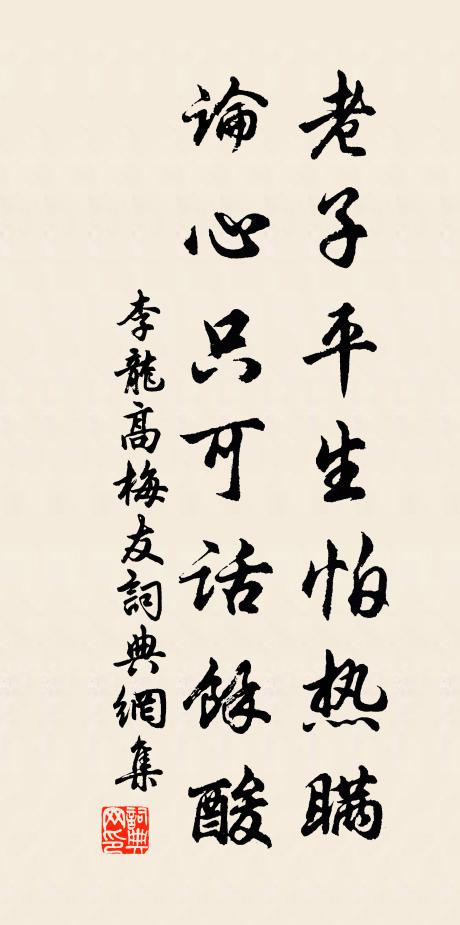 老子平生怕热瞞
論心只可話餘酸
李龍高梅友詞典網集
詞典网印